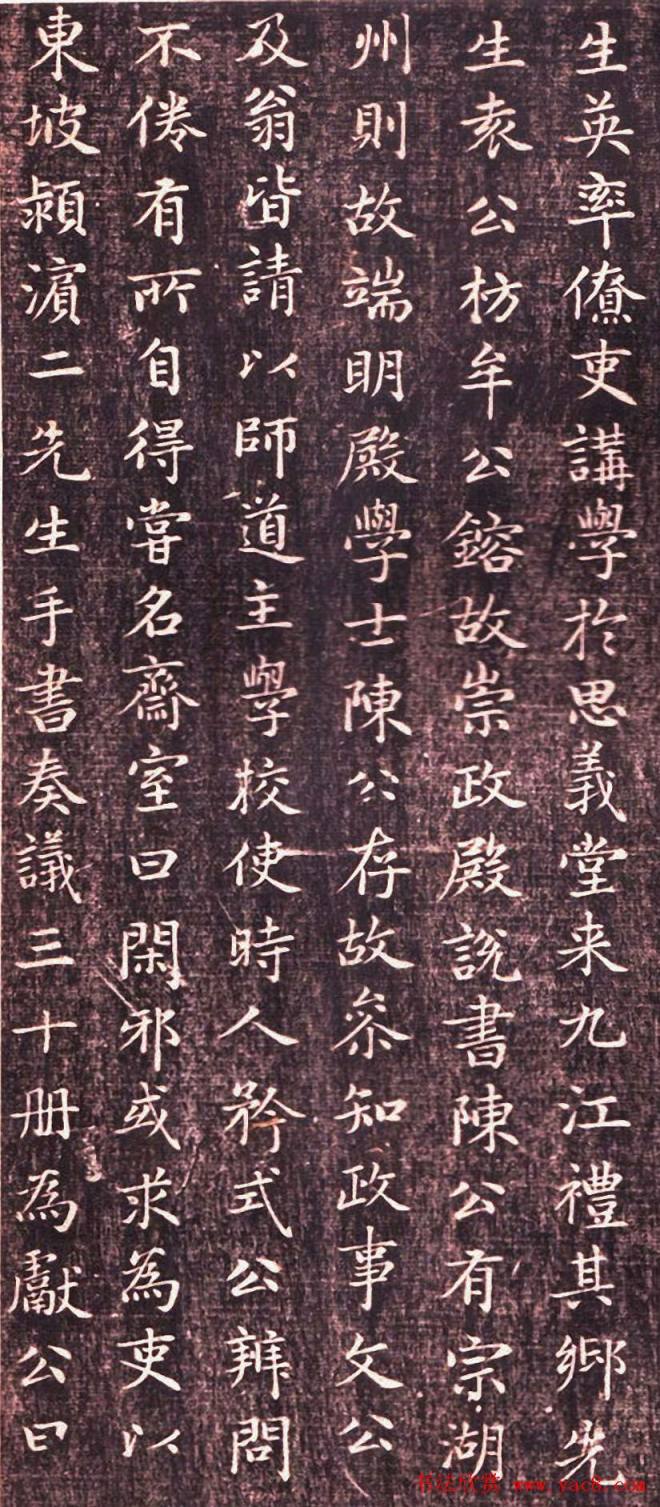 生英率僚吏講學於思義堂来九江禮其鄉先
生袁公枋牟公鎔故崇政殿說書陳公有宗湖
州則故端明殿學士陳公存故叅知政事文公
及翁皆請以師道主學校使時人矜式公辨問
不倦有所自得嘗名齋室曰閑邪或求為吏以
東坡潁濱二先生手書奏議三十冊為獻公曰
书法欣赏 www.yac8.com